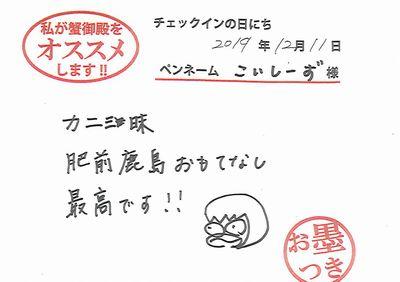 私が蟹御殿を
オススメ
します!!
チェックインの日にち
2019年12月11日
ペンネーム こいしーず 様
カニ三昧
肥前鹿島おもてなし
最高です!!
お墨
つき